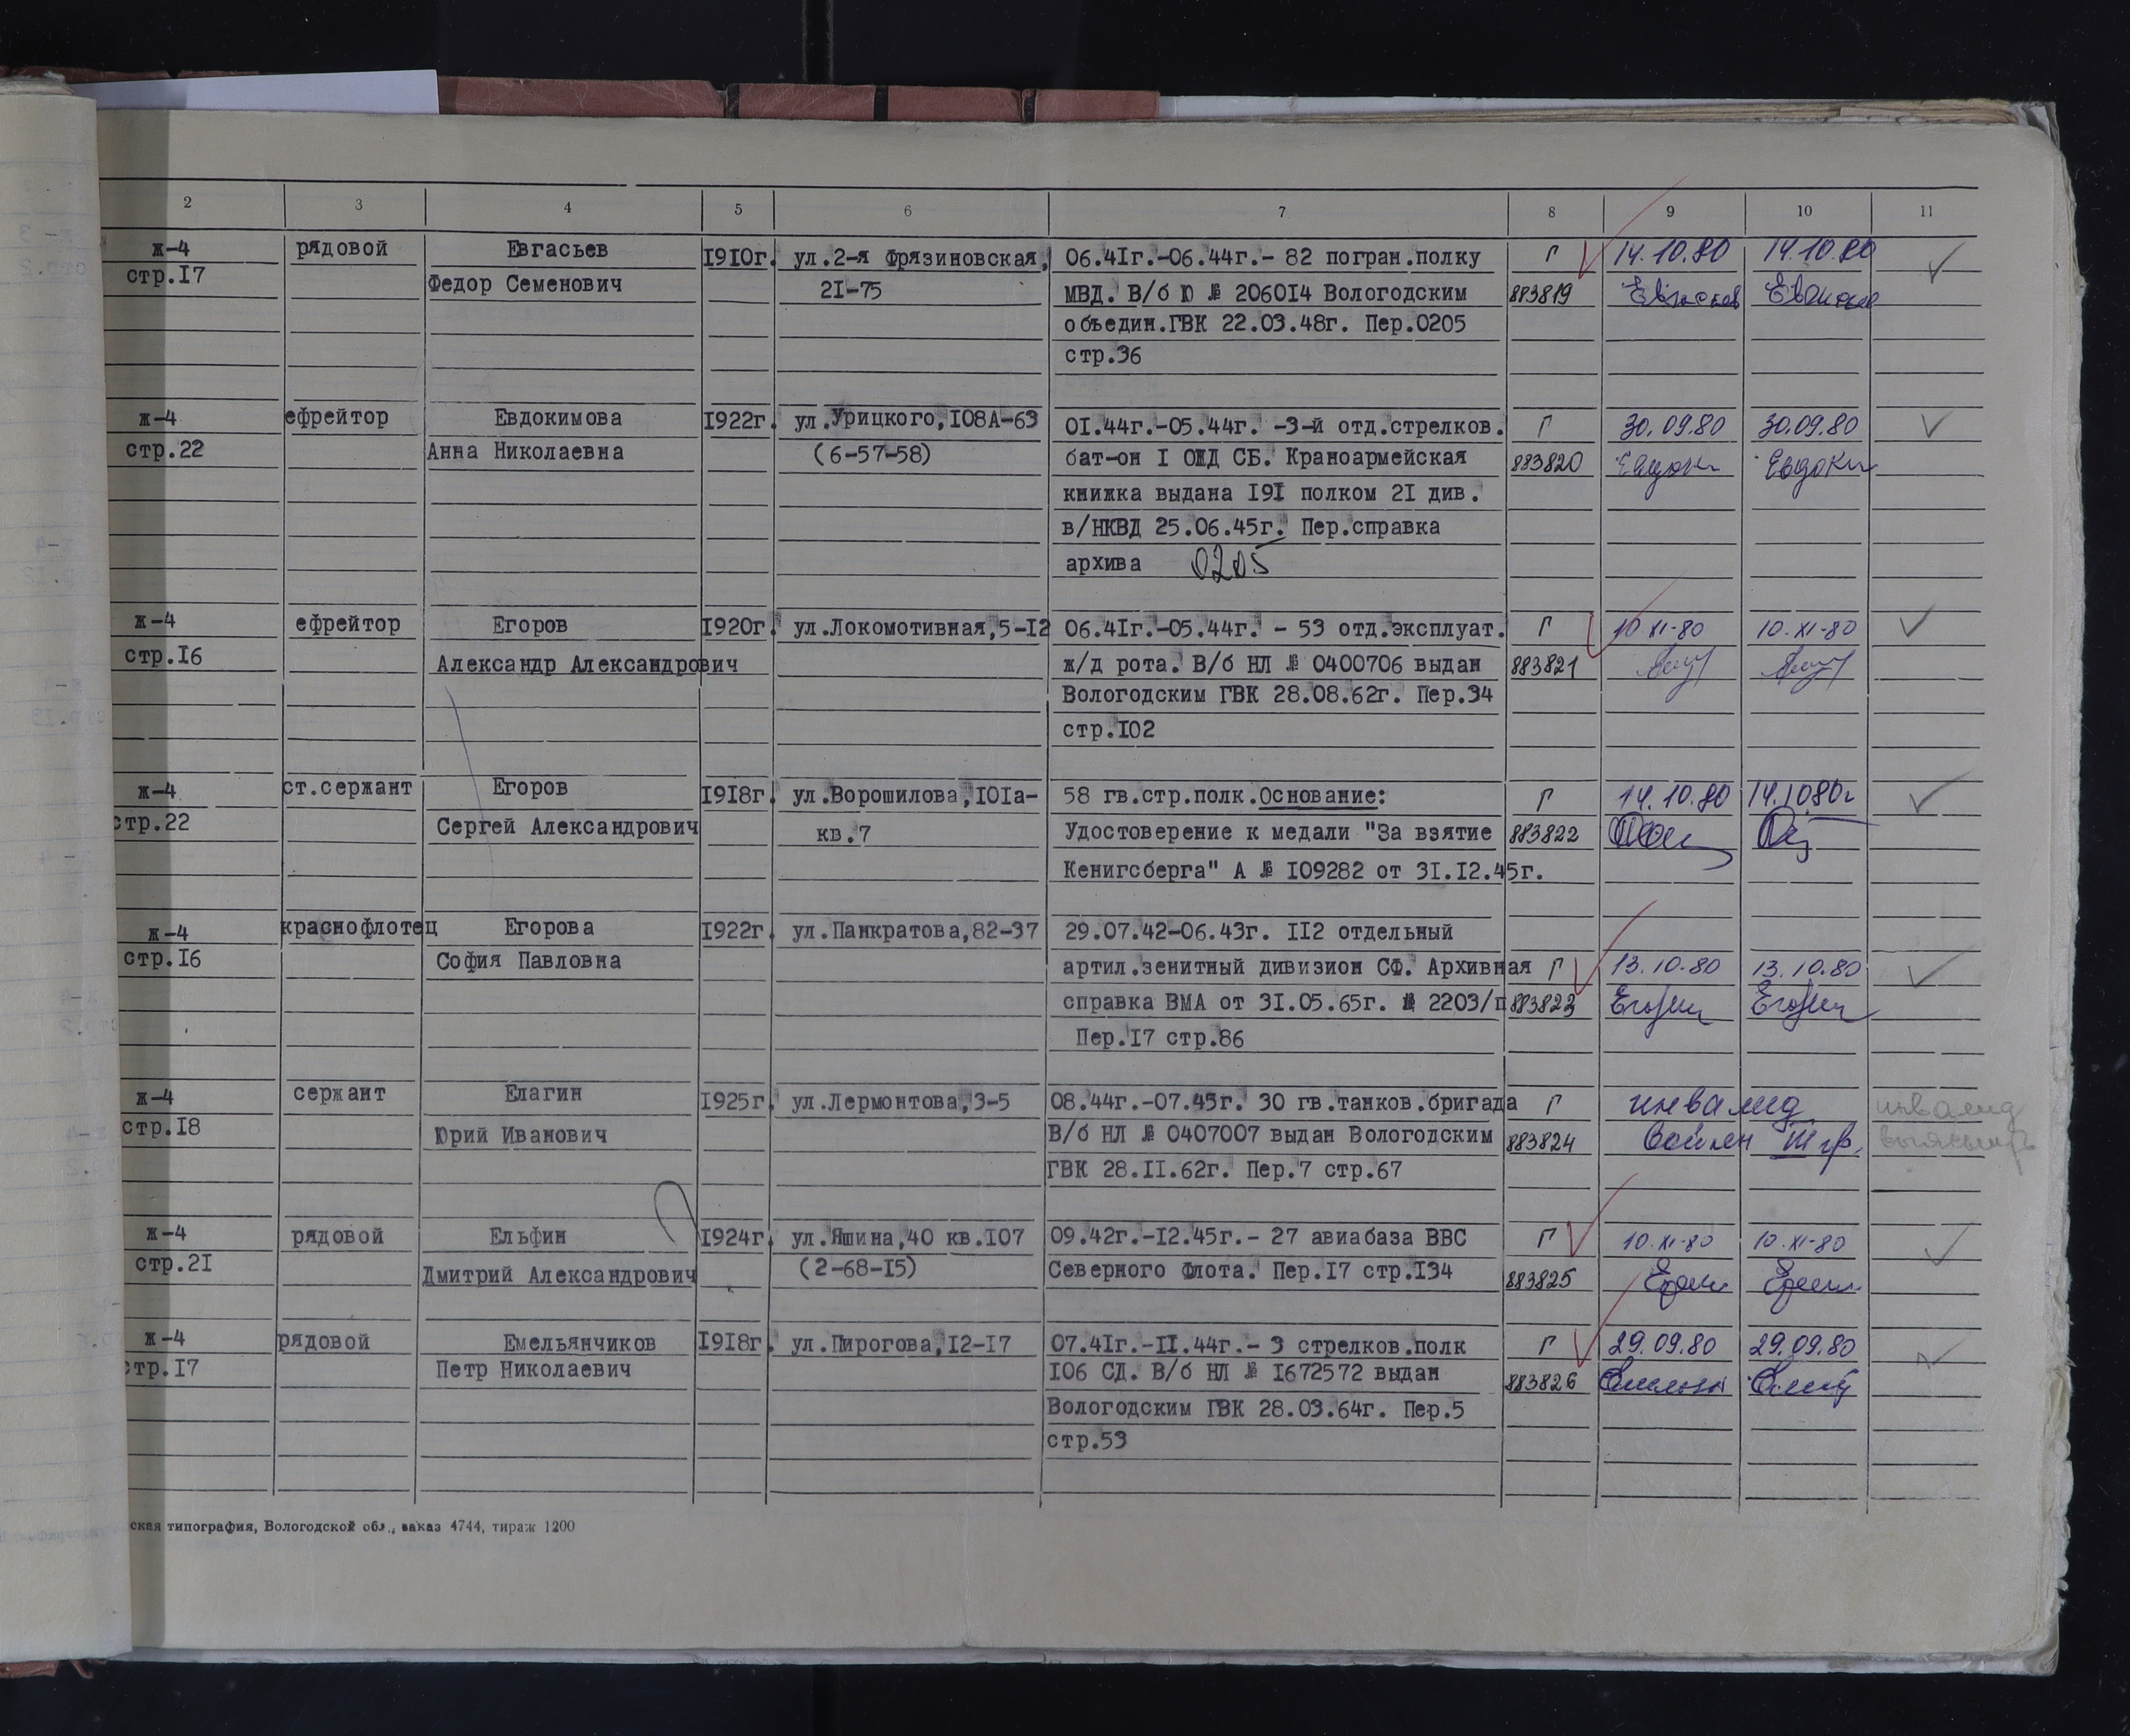 2 3 4 5 6 7 8 9 10 11
ж-4 рядовой Евгасьев 1910г. ул.2-я Фрязиновская, 06.41г.-06.44г.- 82 погран.полку Г 14.10.80 14.10.80
стр.17 Федор Семенович 21-75 МВД. В/б Ю № 206014 Вологодским 883819
объедин.ГВК 22.03.48г. Пер.0205
стр.36
ж-4 ефрейтор Евдокимова 1922г. ул.Урицкого,108А-63 01.44г.-05.44г. -3-й отд.стрелков. Г 30.09.80 30.09.80
стр.22 Анна Николаевна (6-57-58) бат-он I ОЖД СБ. Краноармейская 883820 Евдоки Евдоки
книжка выдана 191 полком 21 див.
в/НКВД 25.06.45г. Пер.справка
архива 0205
ж-4 ефрейтор Егоров 1920г. ул.Локомотивная,5-12 06.41г.-05.44г. - 53 отд.эксплуат. Г 10.XI-80 10.XI-80
стр.16 Александр Александрович ж/д рота. В/б НЛ № 0400706 выдан 883821
Вологодским ГВК 28.08.62г. Пер.34
стр.102
ж-4 ст.сержант Егоров 1918г. ул.Ворошилова,101а- 58 гв.стр.полк.Основание: Г 14.10.80 14.1080г
стр.22 Сергей Александрович кв.7 Удостоверение к медали "За взятие 883822
Кенигсберга" А № 109282 от 31.12.45г.
ж-4 краснофлотец Егорова 1922г. ул.Панкратова,82-37 29.07.42-06.43г. 112 отдельный
стр.16 София Павловна артил.зенитный дивизион СФ. Архивная Г 13.10.80 13.10.80
справка ВМА от 31.05.65г. № 2203/п 883823
Пер.17 стр.86
ж-4 сержант Елагин 1925г. ул.Лермонтова,3-5 08.44г.-07.45г. 30 гв.танков.бригада Г инвалид инвалид
стр.18 Юрий Иванович В/б НЛ № 0407007 выдан Вологодским 883824 войны III гр.
ГВК 28.11.62г. Пер.7 стр.67
ж-4 рядовой Ельфин 1924г. ул.Яшина,40 кв.107 09.42г.-12.45г.- 27 авиабаза ВВС Г 10.XI-80 10.XI-80
стр.21 Дмитрий Александрович (2-68-15) Северного Флота. Пер.17 стр.134 883825
ж-4 рядовой Емельянчиков 1918г. ул.Пирогова,12-17 07.41г.-11.44г.- 3 стрелков.полк Г 29.09.80 29.09.80
стр.17 Петр Николаевич 106 СД. В/б НЛ № 1672572 выдан 883826
Вологодским ГВК 28.03.64г. Пер.5
стр.53
ская типография, Вологодской обл., заказ 4744, тираж 1200